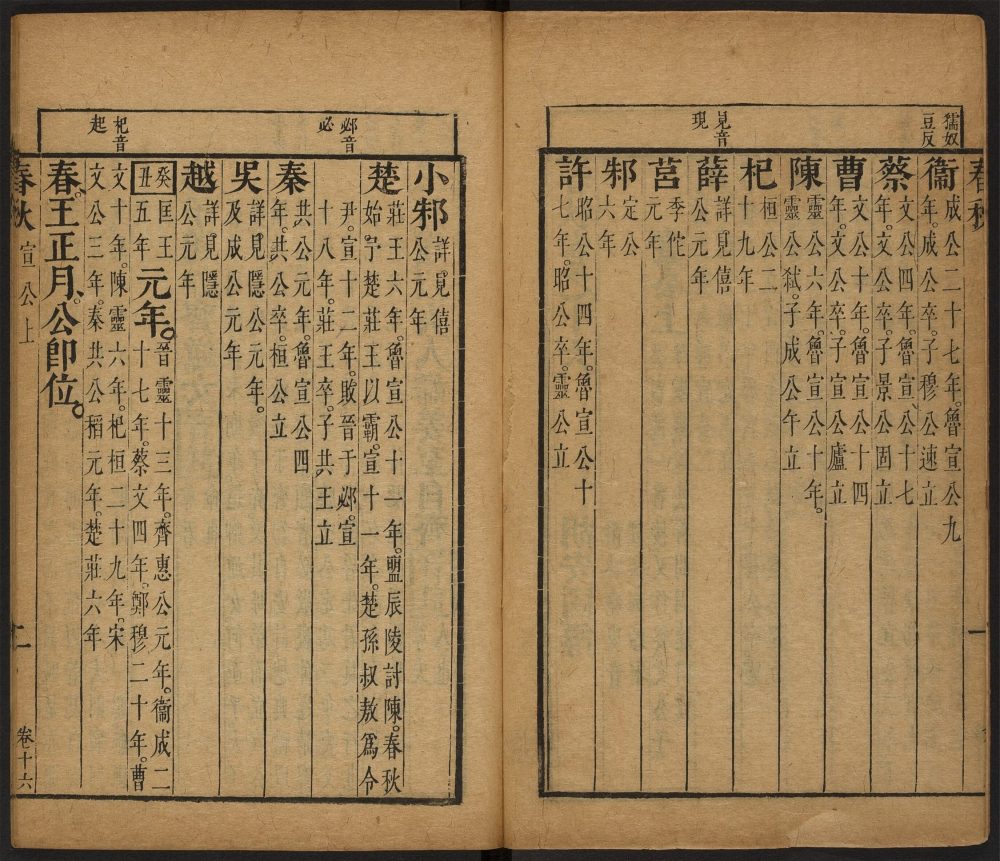 獳奴
豆反
見音
現
春秋
一
衞成公二十七年。魯宣公九
年。成公卒。子穆公速立
蔡文公四年。魯宣公十七
年。文公卒。子景公固立
曹文公十年。魯宣公十四
年。文公卒。子宣公廬立
陳靈公六年。魯宣公十年。
靈公弑。子成公午立
杞桓公二
十九年
薛詳見僖
公元年
莒季佗
元年
邾定公
六年
許昭公十四年。魯宣公十
七年。昭公卒。靈公立
邲音
必
杞音
起
小邾詳見僖
公元年
楚莊王六年。魯宣公十一年。盟辰陵討陳。春秋
始予楚莊王以霸。宣十一年。楚孫叔敖爲令
尹。宣十二年。敗晉于邲。宣
十八年。莊王卒。子共王立
秦共公元年。魯宣公四
年。共公卒。桓公立
吳詳見隱公元年。
及成公元年
越詳見隱
公元年
癸丑匡王
五年
元年。晉靈十三年。齊惠公元年。衞成二
十七年。蔡文四年。鄭穆二十年。曹
文十年。陳靈六年。杞桓二十九年。宋
文公三年。秦共公稻元年。楚莊六年
春。王正月。公卽位。
春秋 宣公上 卷十六